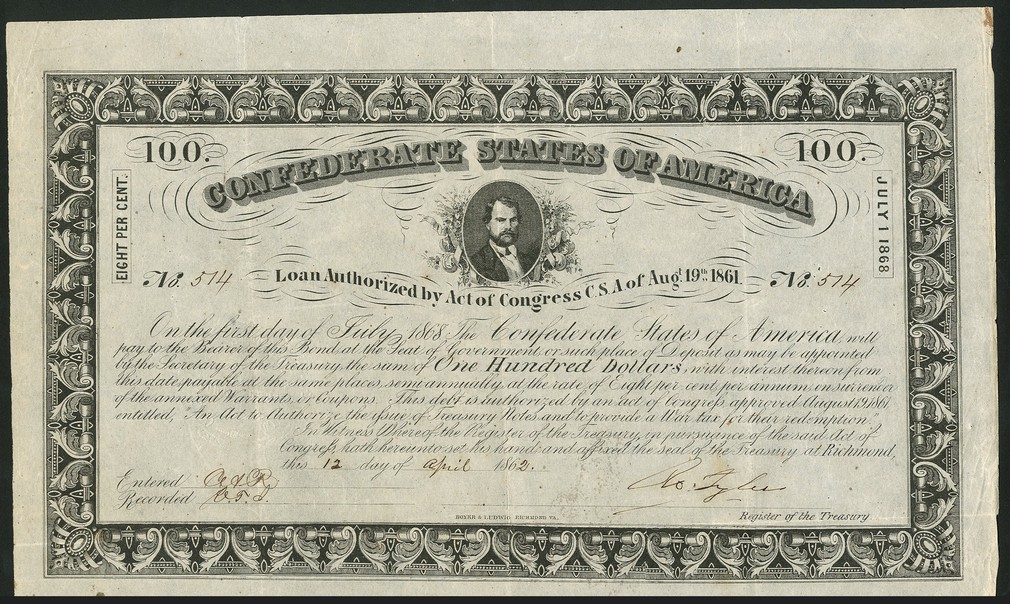 100.
100.
CONFEDERATE STATES OF AMERICA
EIGHT PER CENT.
JULY 1 1868
No. 514
Loan Authorized by Act of Congress C.S.A of Augt. 19th 1861.
No. 514
On the first day of July 1868, The Confederate States of America, will
pay to the Bearer of this Bond, at the Seat of Government or such place of Deposit as may be appointed
by the Secretary of the Treasury, the sum of One Hundred Dollars, with interest thereon from
this date, payable at the same places, semi annually, at the rate of Eight per cent. per annum, on surrender
of the annexed Warrants, or Coupons. This debt is authorized by an act of Congress, approved August 19, 1861,
entitled, "An Act to Authorize the issue of Treasury Notes, and to provide a War tax for their redemption"
In Witness Whereof the Register of the Treasury, in pursuance of the said Act of
Congress, hath hereunto set his hand, and affixed the seal of the Treasury at Richmond,
this 12 day of April 1862.
Entered
Recorded
Ro. Tyler
BOYER & LUDWIG RICHMOND VA.
Register of the Treasury